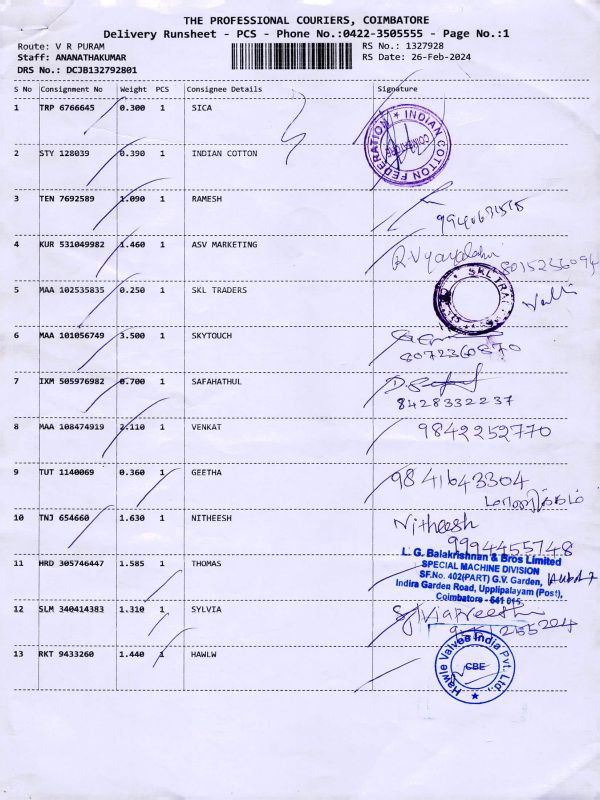 THE PROFESSIONAL COURIERS, COIMBATORE
Delivery Runsheet - PCS - Phone No.:0422-3505555 - Page No.:1
Route: V R PURAM RS No.: 1327928
Staff: ANANATHAKUMAR RS Date: 26-Feb-2024
DRS No.: DCJB132792801
S No Consignment No Weight PCS Consignee Details Signature
1 TRP 6766645 0.300 1 SICA
INDIAN COTTON FEDERATION
COIMBATORE
2 STY 128039 0.390 1 INDIAN COTTON
3 TEN 7692589 1.090 1 RAMESH
4 KUR 531049982 1.460 1 ASV MARKETING
8015236094
5 MAA 102535835 0.250 1 SKL TRADERS
SKL
6 MAA 101056749 3.500 1 SKYTOUCH
8072360870
7 IXM 505976982 0.700 1 SAFAHATHUL
8428332237
8 MAA 108474919 2.110 1 VENKAT 9842252770
9 TUT 1140069 0.360 1 GEETHA 9841643304
10 TNJ 654660 1.630 1 NITHEESH Nitheesh
9994455748
L. G. Balakrishnan & Bros Limited
11 HRD 305746447 1.585 1 THOMAS SPECIAL MACHINE DIVISION
SF.No. 402(PART) G.V. Garden,
Indira Garden Road, Upplipalayam (Post),
Coimbatore - 641 015
12 SLM 340414383 1.310 1 SYLVIA
13 RKT 9433260 1.440 1 HAWLW
Hawle Valves India Pvt. Ltd.,
CBE